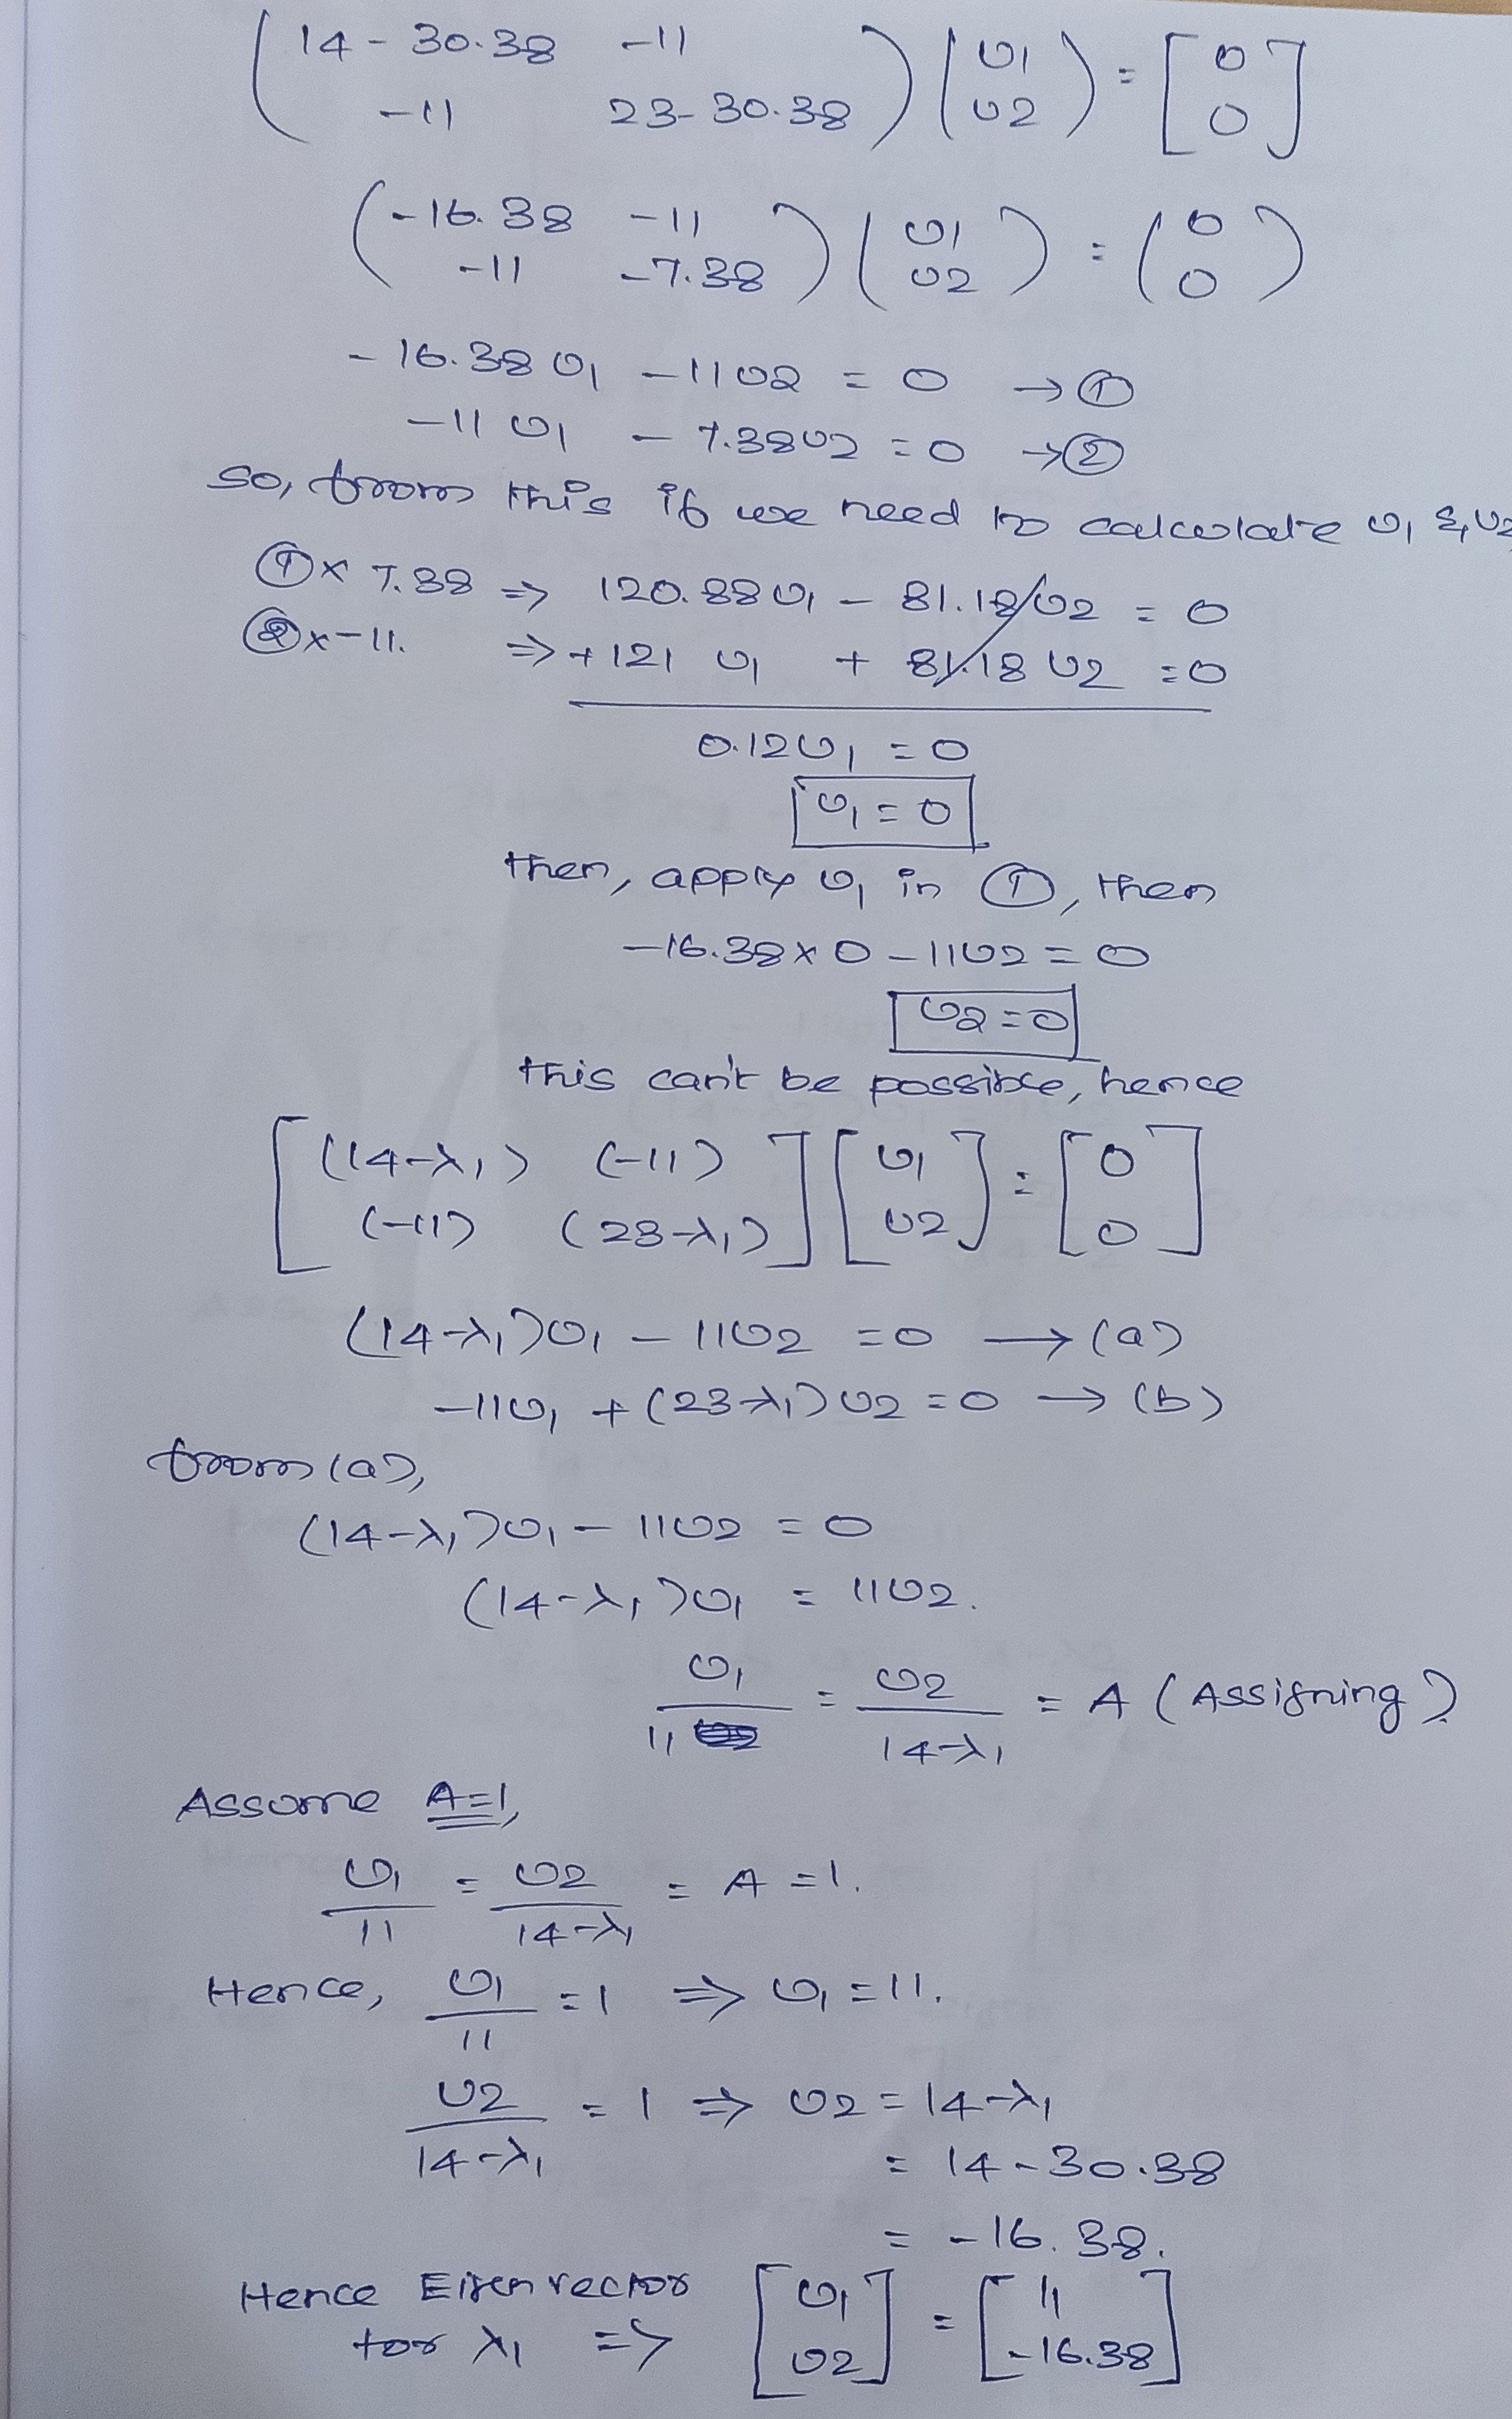 (14-30.38 -11
-11 23-30.38) (υ1
υ2) = [0
0]
(-16.38 -11
-11 -7.38) (υ1
υ2) = (0
0)
-16.38υ1 - 11υ2 = 0 → ①
-11υ1 - 7.38υ2 = 0 → ②
so, from this if we need to calculate υ1 & υ2
① x 7.38 ⇒ 120.88υ1 - 81.18υ2 = 0
② x -11. ⇒ +121υ1 + 81.18υ2 = 0
0.12υ1 = 0
υ1 = 0
then, apply υ1 in ①, then
-16.38 x 0 - 11υ2 = 0
υ2 = 0
this can't be possible, hence
[(14-λ1) (-11)
(-11) (23-λ1)] [υ1
υ2] = [0
0]
(14-λ1)υ1 - 11υ2 = 0 → (a)
-11υ1 + (23-λ1)υ2 = 0 → (b)
from (a),
(14-λ1)υ1 - 11υ2 = 0
(14-λ1)υ1 = 11υ2.
υ1/11 = υ2/14-λ1 = A (Assigning)
Assume A=1,
υ1/11 = υ2/14-λ1 = A = 1.
Hence, υ1/11 = 1 ⇒ υ1 = 11.
υ2/14-λ1 = 1 ⇒ υ2 = 14-λ1
= 14-30.38
= -16.38.
Hence Eigen vector
for λ1 => [υ1
υ2] = [11
-16.38]